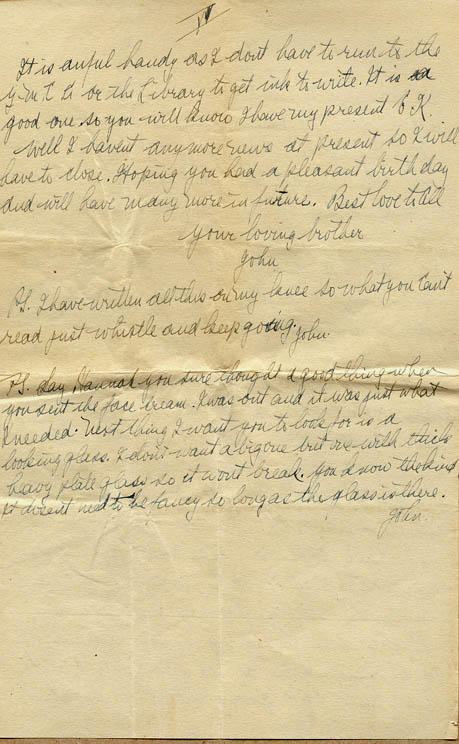 IV
It is awful handy as I dont have to run to the
Y.M.C.A or the Library to get ink to write. It is a
good one so you will know I have my present O.K.
Well I havent anymore news at present so I will
have to close. Hoping you had a pleasant birthday
and will have many more in future. Best love to All
Your loving brother
John
P.S. I have written all this on my knee so what you Can't
read just whistle and keep going. John.
P.S. Say Hannah you sure thought a good thing when
you sent the face cream. I was out and it was just what
I needed. Next thing I want you to look for is a
looking glass. I dont want a big one but one with thick
heavy plate glass so it wont break. You know the kind
It doesent need to be fancy so long as the glass is there.
John.